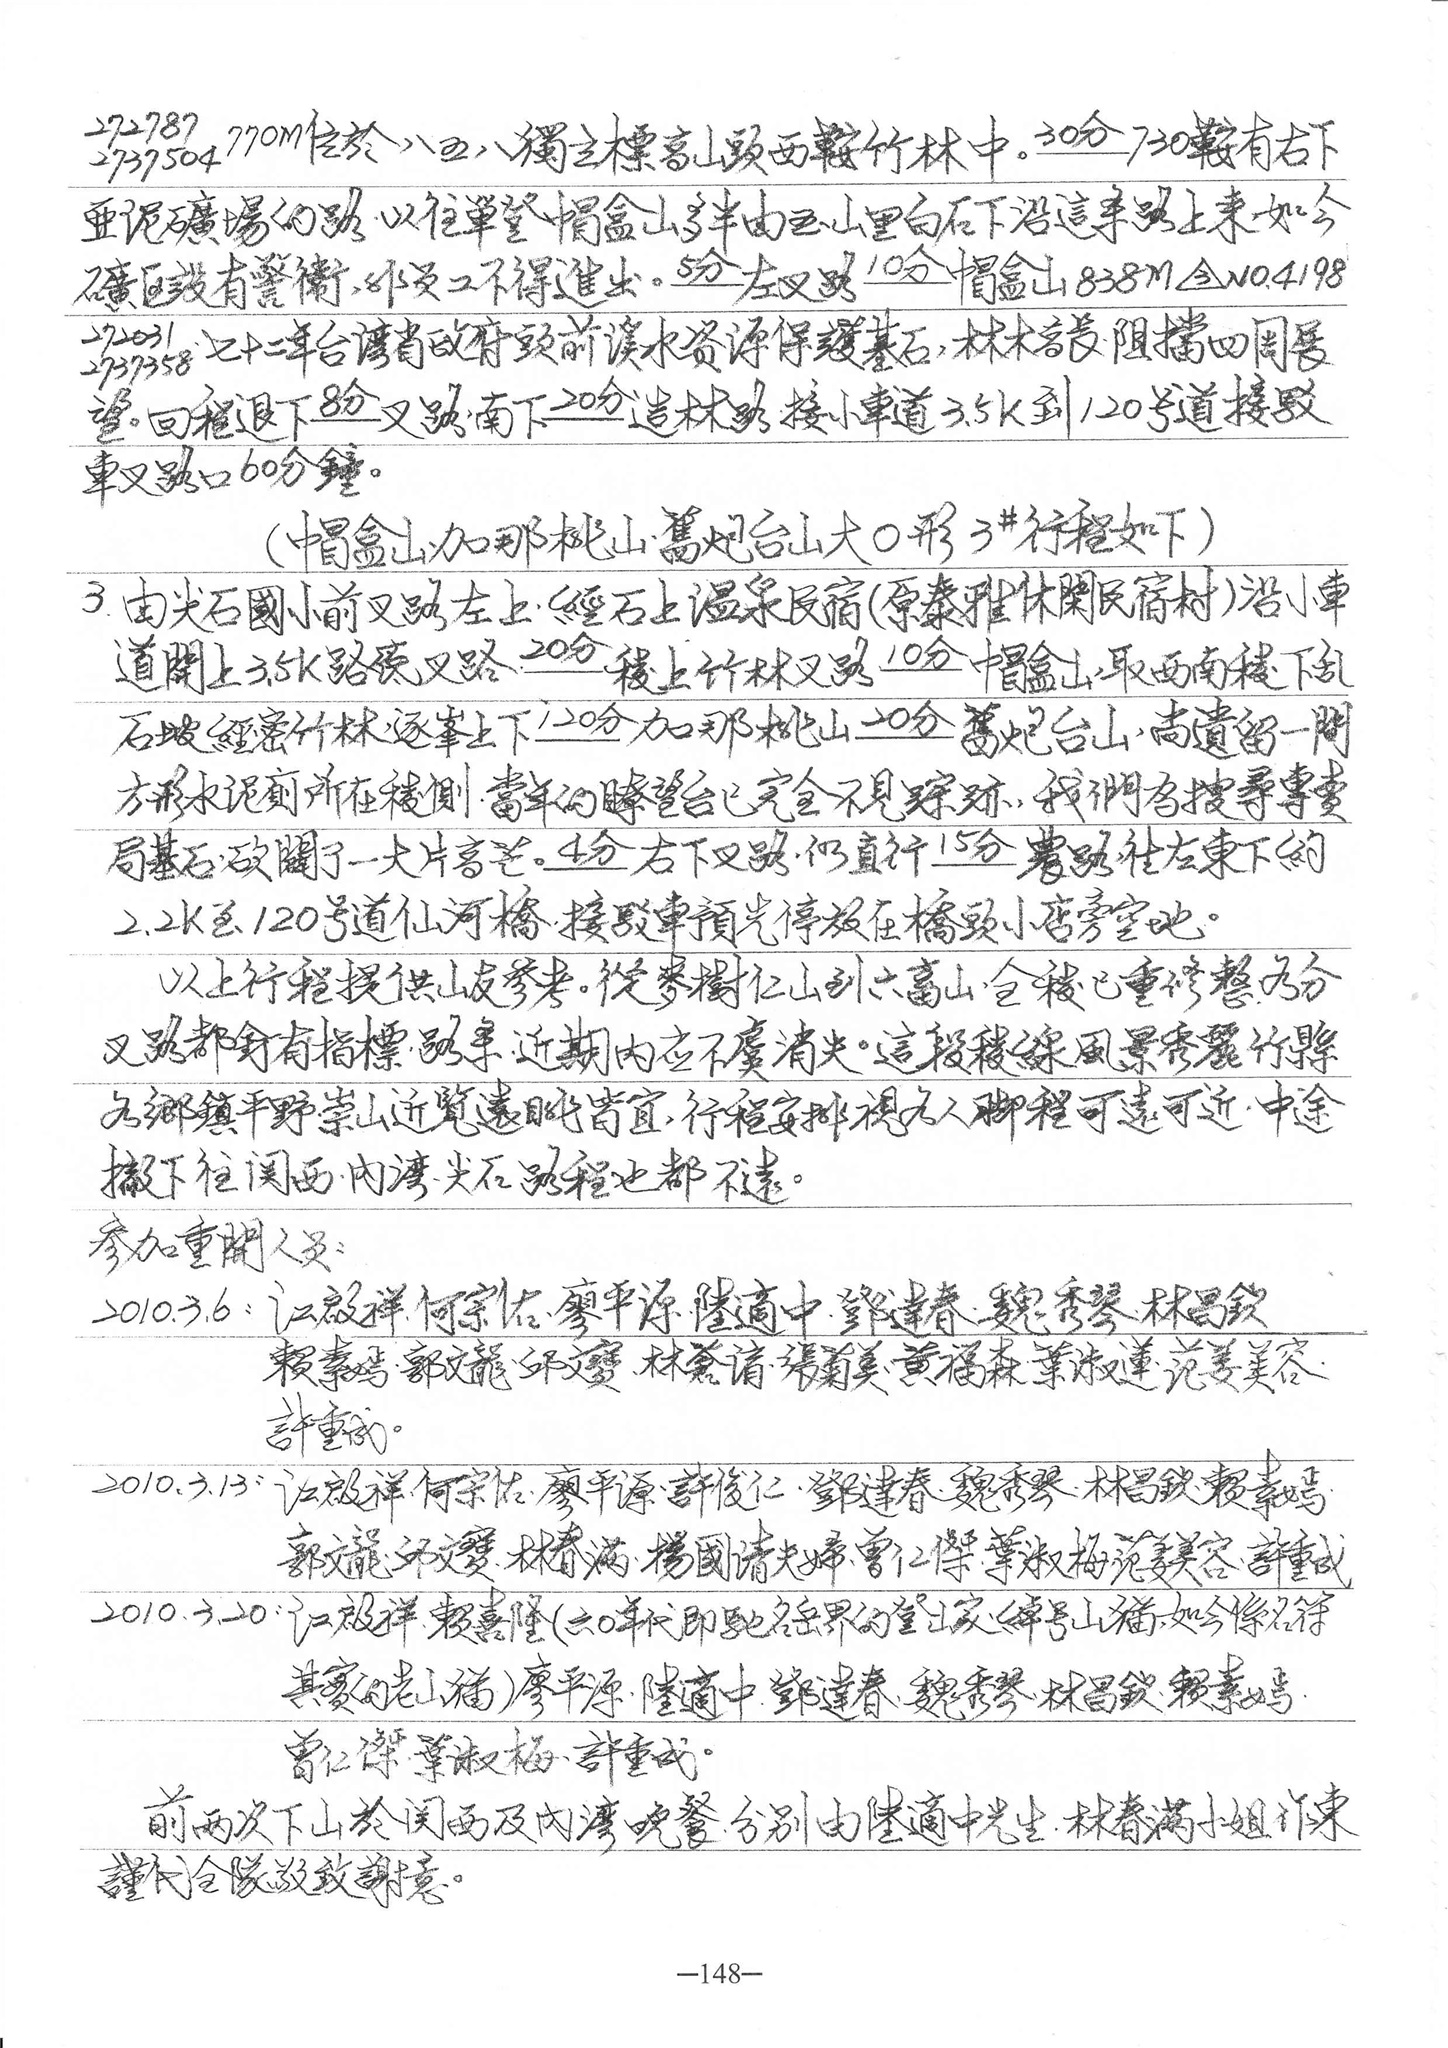 272787
2737504 770M位於八五八獨立標高山頭西鞍竹林中。30分 730鞍有右下
亚泥礦場的路,以往單登帽盒山多半由玉山里白石下沿這条路上来,如今
礦区設有警衛,非員工不得進出。5分 左叉路 10分 帽盒山838M△NO.4198
272031
2737358 七十二年台湾省政府頭前溪水資源保護基石,林木高長,阻擋四周展
望。回程退下 8分 叉路,南下 20分 造林路,接小車道3.5K到120号道接駁
車叉路口60分鐘。
(帽盒山.加那桃山.舊炮台山大O形3#行程如下)
3. 由尖石國小前叉路左上,經石上温泉民宿(原泰雅休閒民宿村)沿小車
道開上3.5K路標叉路 20分 稜上竹林叉路 10分 帽盒山,取西南稜下乱
石坡經密竹林,逐峯上下 120分 加那桃山 20分 舊炮台山,尚遺留一間
方形水泥廁所在稜側,當年的瞭望台已完全不見踪跡,我們為搜尋專賣
局基石,砍開了一大片高芒。4分 右下叉路,仍直行 15分 農路,往左東下約
2.2K至120号道仙河橋,接駁車預先停放在橋頭小店旁空地。
以上行程提供山友參考。從麥樹仁山到六畜山,全稜已重修整,各分
叉路都釘有指標,路条,近期內应不虞消失。這段稜線風景秀麗,竹縣
各鄉鎮平野崇山近覽遠眺皆宜,行程安排視各人脚程可遠可近,中途
撤下往関西.內湾.尖石路程也都不遠。
参加重開人員:
2010.3.6: 江啟祥.何宗佑.廖平源.陸適中.鄧達春.魏秀琴.林昌欽
賴素嫣.郭文龍.邱文寶.林蒼請.張菊美.黄福森.葉淑蓮.范姜美容.
許重成。
2010.3.13: 江啟祥.何宗佑.廖平源.許俊仁.鄧達春.魏秀琴.林昌欽.賴素嫣.
郭文龍.邱文寶.林春满.楊國清夫婦.曾仁傑.葉淑梅.范姜美容.許重成
2010.3.20: 江啟祥.賴喜隆(六O年代即馳名岳界的登山家,綽号山猫,如今係名符
其實的老山猫)廖平源.陸適中.鄧達春.魏秀琴.林昌欽.賴素嫣.
曾仁傑.葉淑梅.許重成。
前两次下山於関西及內湾晚餐,分別由陸適中先生.林春满小姐作東
謹代全隊敬致謝意。
—148—